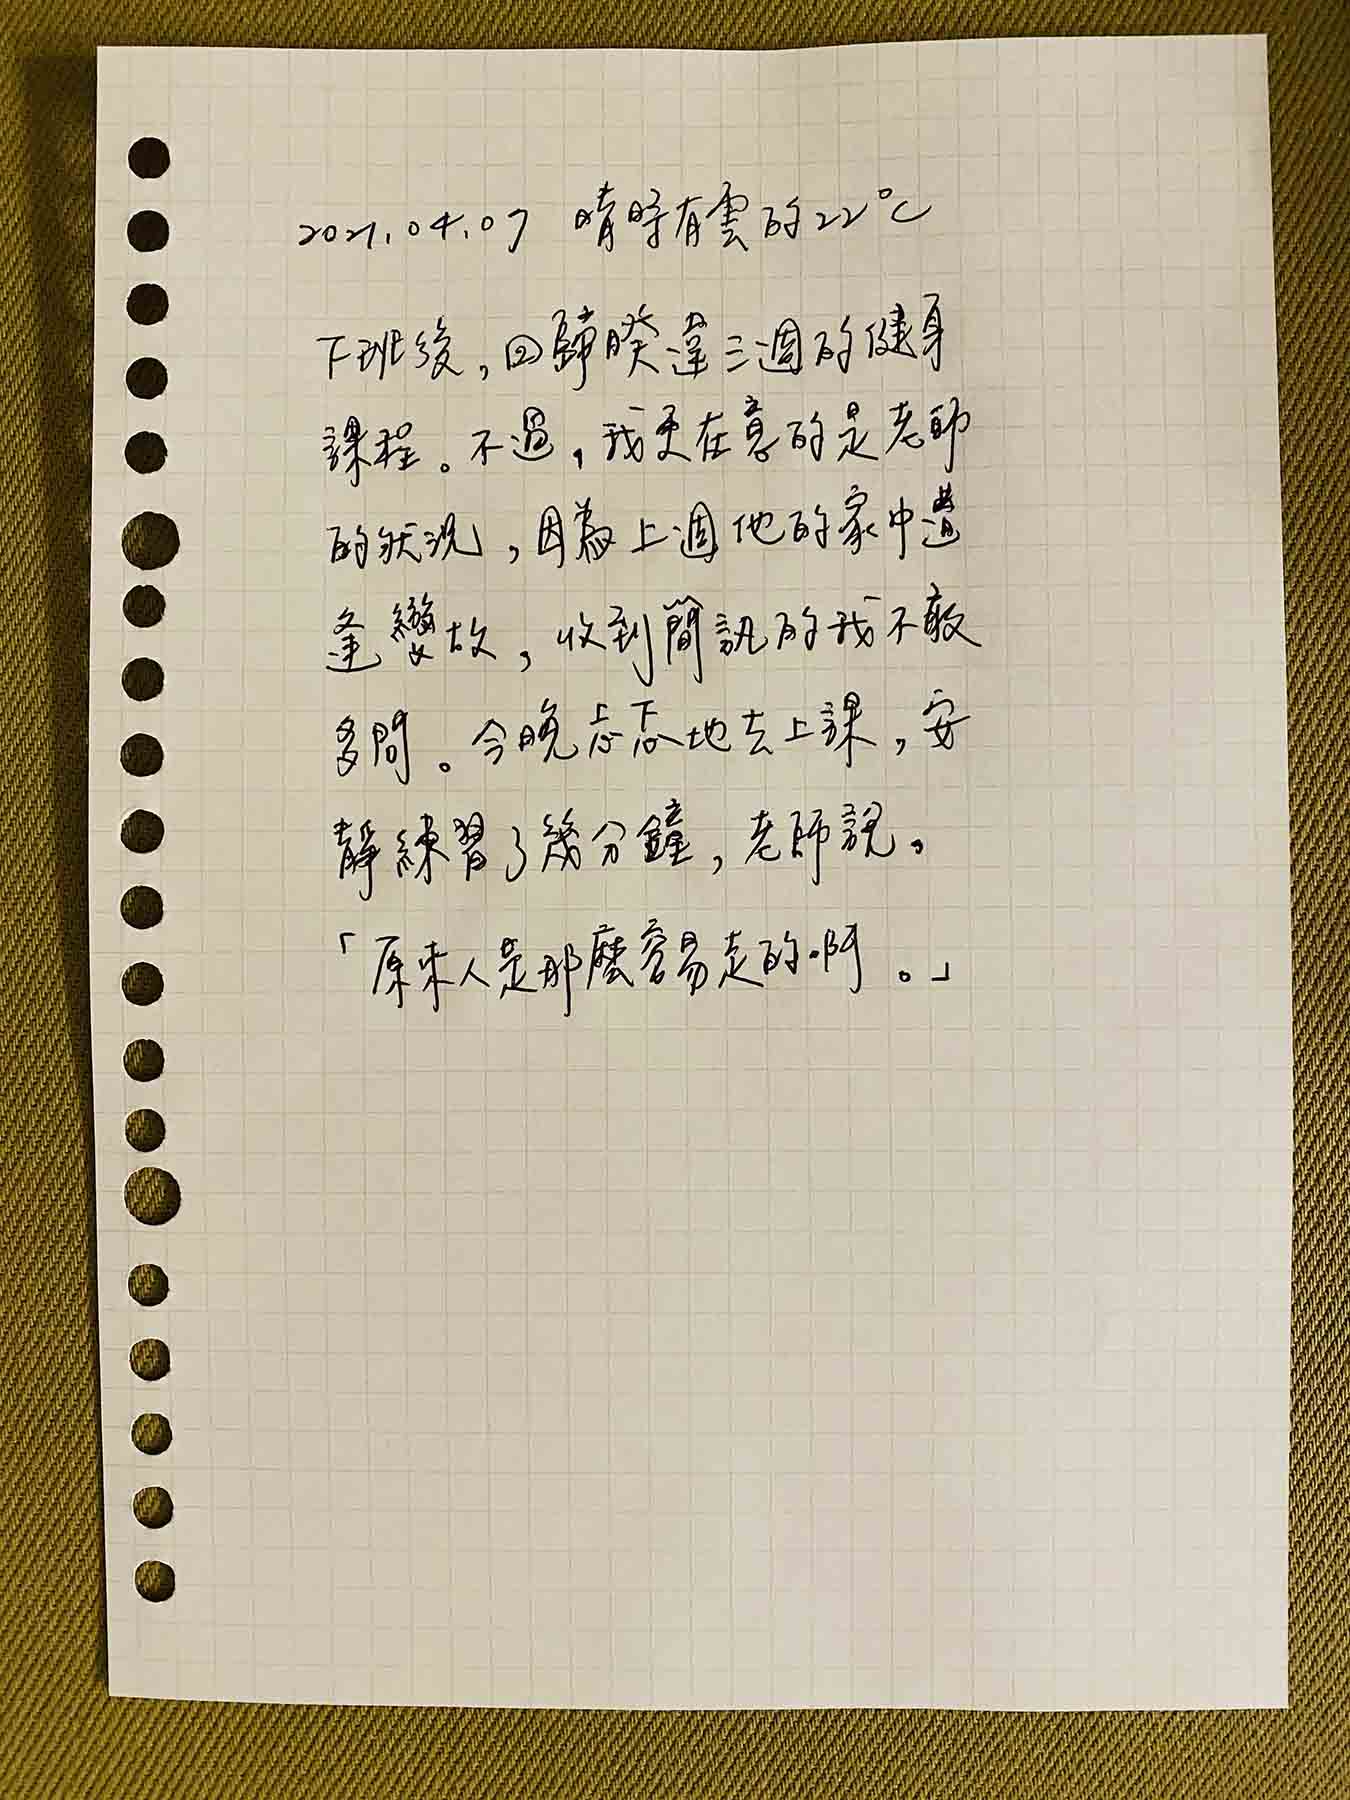 2021.04.07 晴時有雲的22°C
下班後，回歸睽違三週的健身
課程。不過，我更在意的是老師
的狀況，因為上週他的家中遭
逢變故，收到簡訊的我不敢
多問。今晚忐忑地去上課，安
靜練習了幾分鐘，老師說，
「原來人是那麼容易走的啊。」